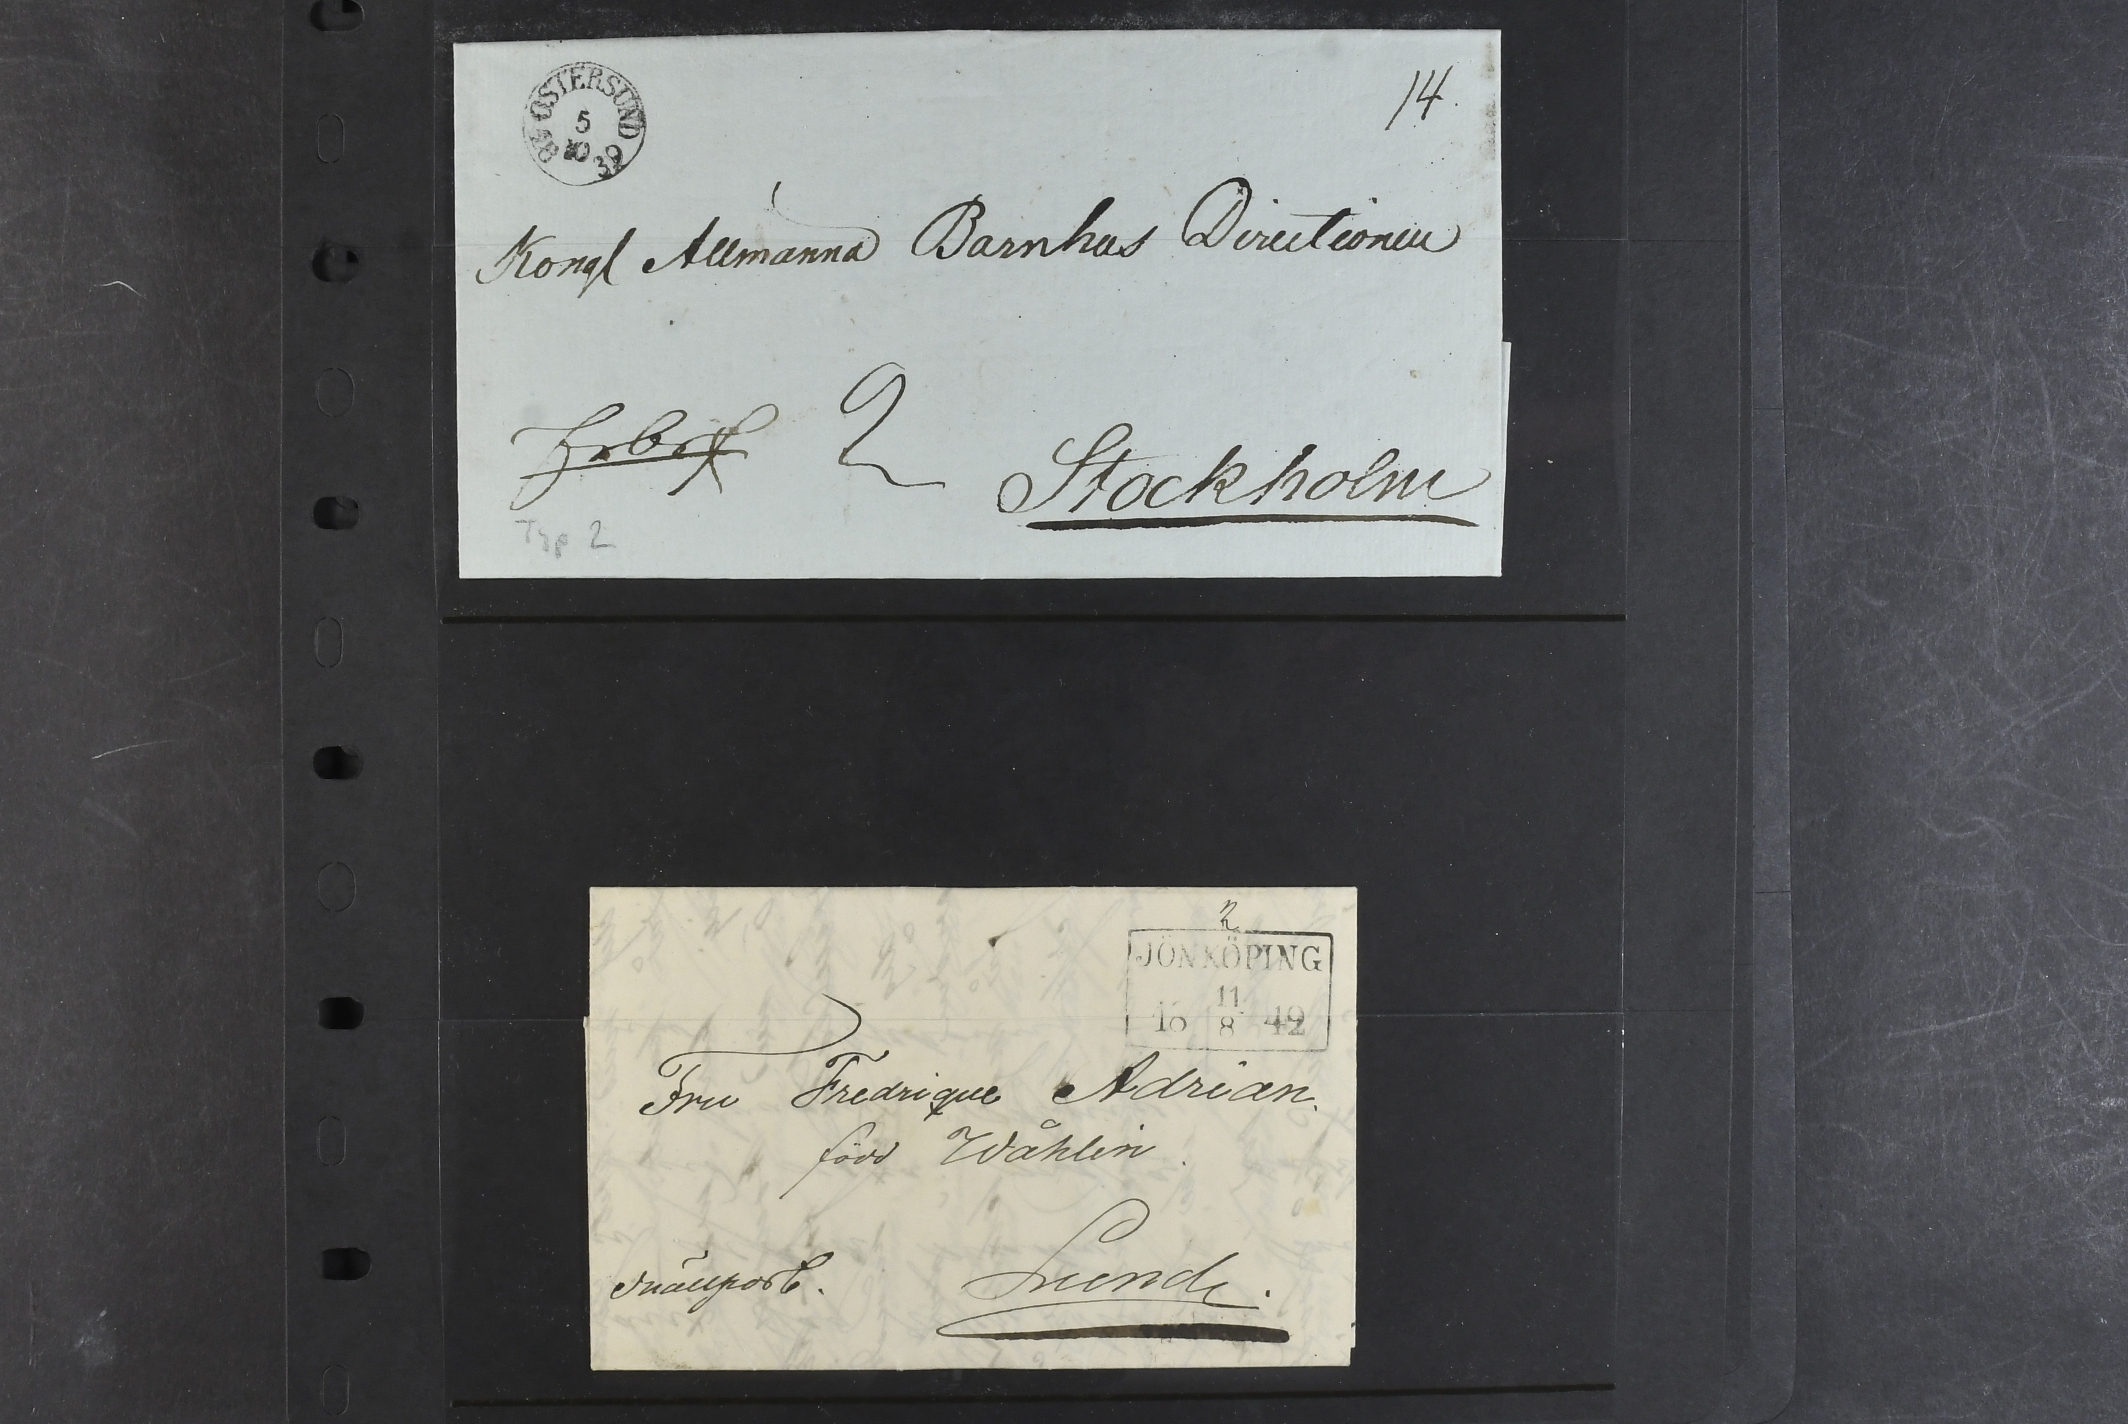 ÖSTERSUND
5
10
18 39
14.
Kongl Allmänna Barnhus Directionen
2
Stockholm
Typ 2
2
JÖNKÖPING
11
18 8 42
Fru Fredrique Adrian.
född Wåhlin.
Snällpost.
Lund.